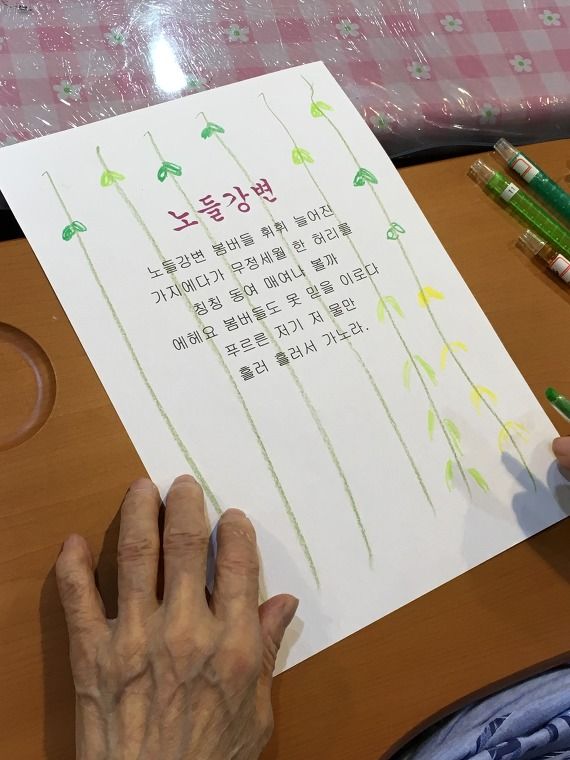 노들강변
노들강변 봄버들 휘휘 늘어진
가지에다가 무정세월 한 허리를
칭칭 동여 매여나 볼까
에헤요 봄버들도 못 믿을 이로다
푸르른 저기 저 물만
흘러 흘러서 가노라.